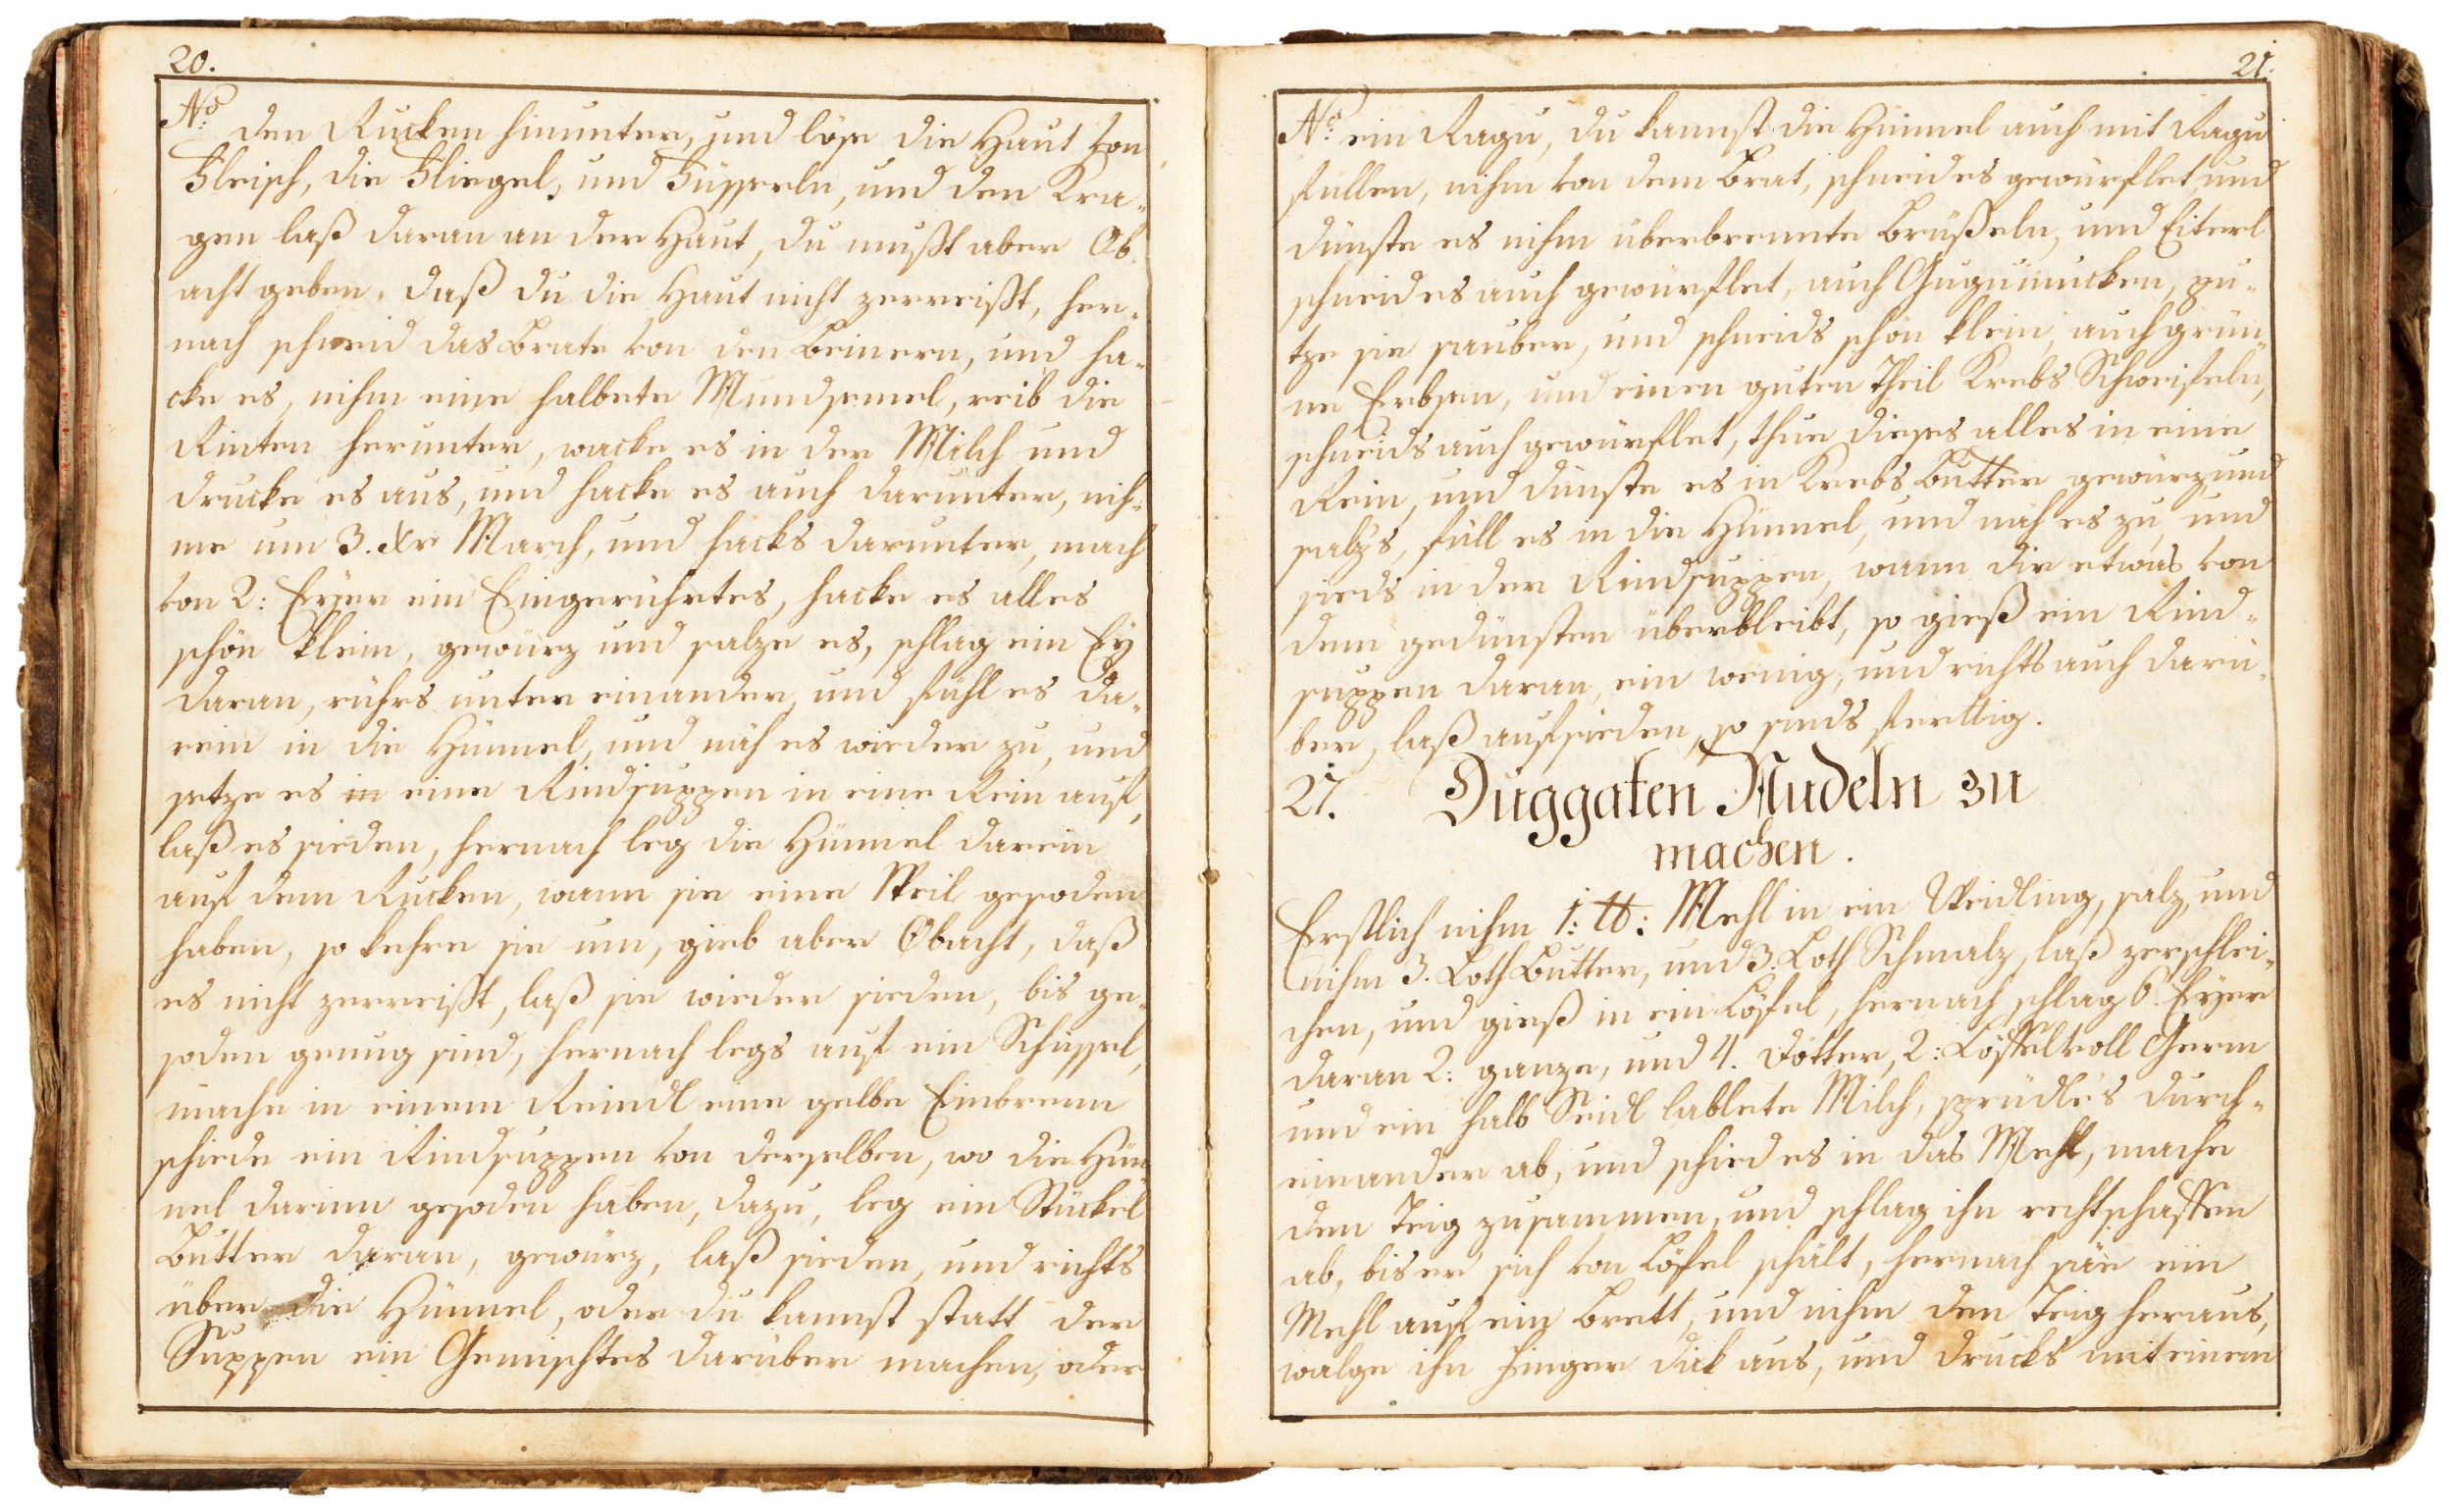 20.
No: den Rucken hinunter, und löse die Haut von
Fleisch, die Fliegel, und Füsserln, und den Kra„
gen laß daran an der Haut, du mußt aber Ob
acht geben, daß du die Haut nicht zerreißt, her„
nach schneid das Brate von den Beinern, und ha„
cke es, nihm eine halbete Mundsemel, reib die
Rinten herunter, waicke es in der Milch und
drucke es aus, und hacke es auch darunter, nih„
me um 3. Xr March, und hacks darunter, mach
von 2: Eÿer ein Eingerührtes, hacke es alles
schön klein, gewürz und salze es, schlag ein Eÿ
daran, rührs unter einander, und fühl es da„
rein in die Hünnel, und näh es wieder zu, und
setze es in eine Rindsuppen in eine Rein auf,
laß es sieden, hernach leg die Hünnel darein
auf dem Rucken, wann sie eine Weil gesoden
haben, so kehre sie um, gieb aber Obacht, daß
es nicht zerreißt, laß sie wieder sieden, bis ge„
soden genug sind, hernach legs auf ein Schüssel,
mache in einem Reindl eine gelbe Einbrenn
schiede ein Rindsuppen von derselben, wo die Hün
nel darinn gesoden haben, dazu, leg ein Stückel
Butter daran, gewürz, laß sieden, und richts
über die Hünnel, oder du kannst statt der
Suppen ein Gemischtes darüber machen, oder
21.
No: ein Ragu, du kannst die Hünnel auch mit Ragu
füllen, nihm von dem Brat, schneid es gewürflet und
dünste es nihm überbrennte Brüßeln, und Eiterl
schneid es auch gewürflet, auch Gugumucken, pu„
tze sie sauber, und schneids schön klein, auch grün„
ne Erbsen, und einen guten Theil Krebs Schweifeln,
schneids auch gewürflet, thue dieses alles in eine
Rein, und dünste es in Krebs Butter gewürz, und
salz's, füll es in die Hünnel, und näh es zu, und
sieds in der Rindsuppen, wann dir etwas von
dem gedünsten überbleibt, so gieß ein Rind„
suppen daran, ein wenig, und richts auch darü„
ber, laß aufsieden, so sinds ferttig.
27. Duggaten Nudeln zu
machen.
Erstlich nihm 1: ℔: Mehl in ein Weidling, salz, und
nihm 3. Loth Butter, und 3. Loth Schmalz, laß zerschlei„
chen, und gieß in ein Löffel, hernach schlag 6. Eÿer
daran 2: ganze, und 4. Dötter, 2: Löffel voll Germ
und ein halb Seidl lablete Milch, sprüdle's durch„
einander ab, und schied es in das Mehl, mache
den Teig zusammen, und schlag ihn rechtschaffen
ab, bis er sich von Löffel schält, hernach säe ein
Mehl auf ein Brett, und nihm den Teig heraus,
walge ihn Finger dick aus, und drucks mit einem